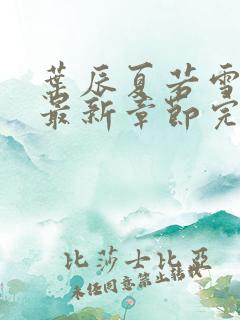 葉辰夏若雪
最新章節完
比莎士比亞
未經同意禁止轉載